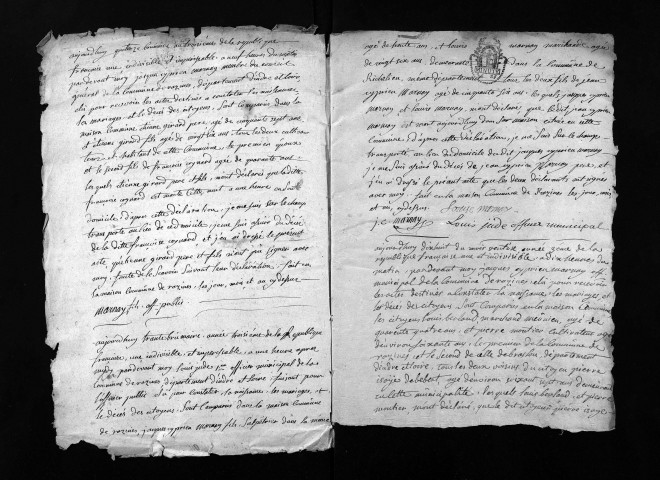 aujourdhuy quinze brumaire an troisieme de la république
francaise une indivisible et imperissable a neuf heures du matin
pardevant moy jacques cyprien marnay membre du conseil
general de la commune de razines, département d'indre et loire,
elu pour recevoir les actes destinés a constater les naissances,
les mariages et le décès des citoyens, sont comparus dans la
maison commune étienne girard pere agé de cinquante sept ans,
et étienne girard fils agé de vingt six ans tous les deux cultiva
teurs et habitant de cette commune, le premier
et le second fils de francoise aynard agée de quarante
les quels etienne girard pere et fils, m'ont déclaré que la ditte
francoise aynard est morte cette nuit a une heure en son
domicile, d'apres cette déclaration, je me suis sur le champ
transporté au lieu de ce domicile, je me suis assuré du décès
de la ditte francoise aynard et j'en ai dressé le présent
acte, qu'etienne girard pere et fils n'ont pu signer avec
moy, faute de le savoir suivant leur déclaration. fait en
la maison commune de razines, les jour, mois et an cy dessus
marnay fils off. public
aujourdhuy trente brumaire, année troisieme de la République
francaise, une indivisible, et imperissable, a une heure apres
midy, pardevant moy louis jude, officier municipal de la
commune de razines département d'indre et loire faisant pour
l'officier public elu pour constater, la naissance, les mariages, et
le décès des citoyens, sont comparus dans la maison commune
de razines, jacques cyprien marnay fils, salpetrier dans la meme
agé de trente ans, et louis marnay marchand agé
de vingt six ans demeurant dans la commune de
Richelieu, meme département, tous les deux fils de jean
cyprien marnay agé de cinquante six ans: les quels jacques cyprien
marnay et louis marnay, m'ont déclaré que le dit jean cyprien
marnay est mort aujourdhuy dans son maison située en cette
commune. d'apres cette déclaration, je me suis sur le champ
transporté, au lieu du domicile du dit jacques cyprien marnay,
je me suis assuré du décès de jean cyprien Marnay pere, et
j'en ai dressé le présent acte que les deux déclarants ont signés
avec moy. fait en la maison commune de Razines les jour, mois
et an, cy dessus. Louis marnay
J. C. marnay Louis jude officier municipal
aujourdhuy dixhuit du mois année de la
république francaise une et indivisible a dix heures du
matin, pardevant moy jacques cyprien marnay off
municipal de la commune de razines elu pour recevoir
les actes destinés a constater la naissance, les mariages, et
les décès des citoyens. sont comparus en la maison commune
les citoyens louis berland marchand agé de
quarante quatre ans, et pierre moutier cultivateur agé
d'environ soixante ans: le premier de la commune de
razines, et le second de celle de braslou, département
d'indre et loire, tous les deux voisins du citoyen pierre
agé d'environ soixante sept ans demeurant
en cette municipalité: les quels louis berland, et pierre
moutier m'ont déclaré, que le dit citoyen pierre